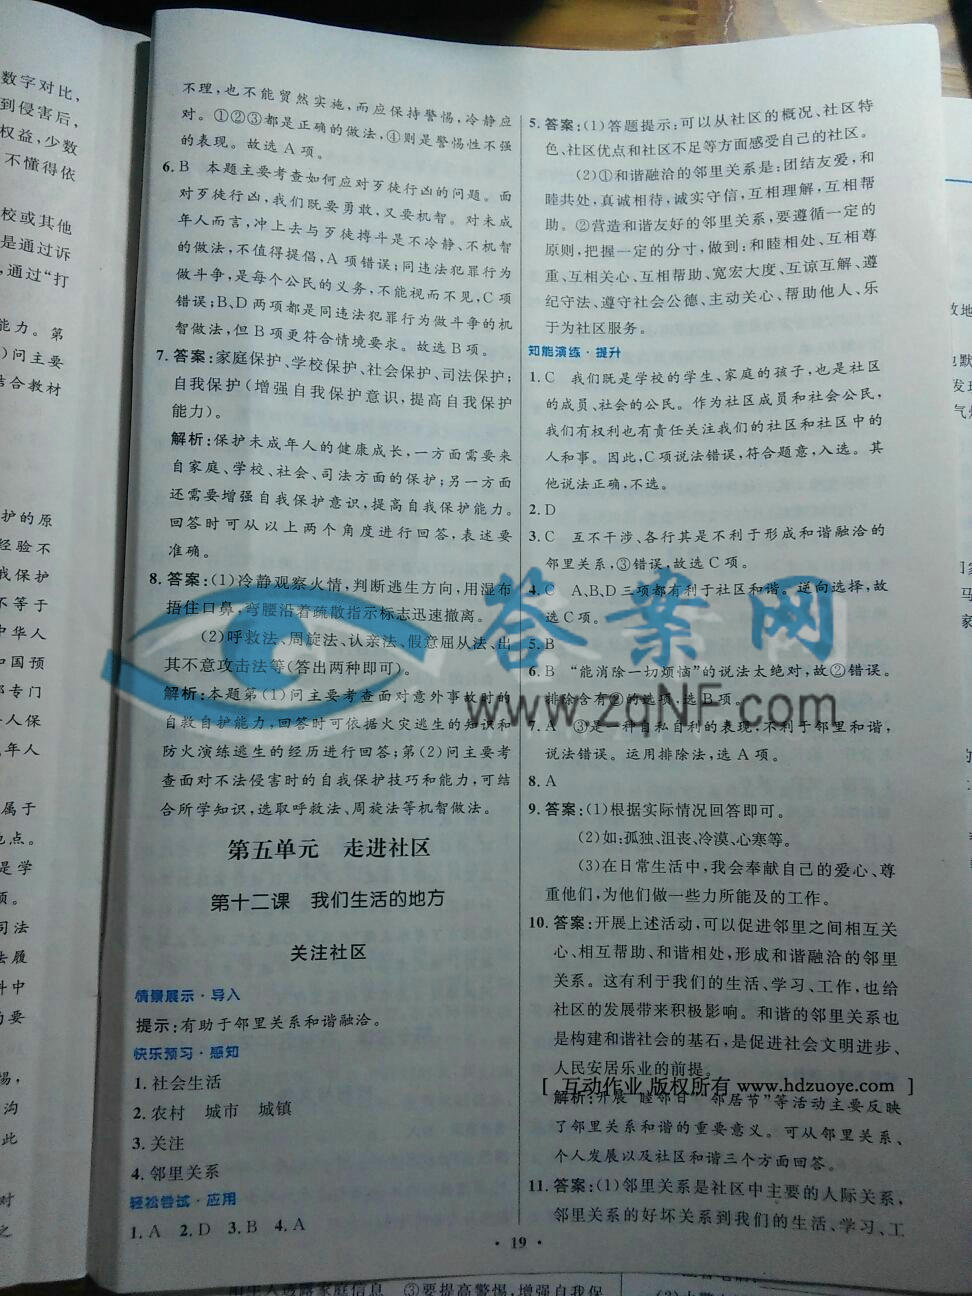 数字对比,
到侵害后,
权益,少数
不懂得依
校或其他
是通过诉
,通过“打
能力。第
)问主要
结合教材
护的原
经验不
我保护
不等于
中华人
和国预
部专门
一人保
年人
属于
地点。
是学
项。
司法
去履
科中
的要
惕,
沟
此
对
之
不理,也不能贸然实施,而应保持警惕,冷静应
对。①②③都是正确的做法,④则是警惕性不强
的表现。故选A项。
6. B 本题主要考查如何应对歹徒行凶的问题。面
对歹徒行凶,我们既要勇敢,又要机智。对未成
年人而言,冲上去与歹徒搏斗是不冷静、不机智
的做法,不值得提倡,A项错误;同违法犯罪行为
做斗争,是每个公民的义务,不能视而不见,C项
错误;B、D两项都是同违法犯罪行为做斗争的机
智做法,但B项更符合情境要求。故选B项。
7. 答案:家庭保护、学校保护、社会保护、司法保护;
自我保护(增强自我保护意识,提高自我保护
能力)。
解析:保护未成年人的健康成长,一方面需要来
自家庭、学校、社会、司法方面的保护;另一方面
还需要增强自我保护意识,提高自我保护能力。
回答时可从以上两个角度进行回答,表述要
准确。
8. 答案:(1)冷静观察火情,判断逃生方向,用湿布
捂住口鼻,弯腰沿着疏散指示标志迅速撤离。
(2)呼救法、周旋法、认亲法、假意屈从法、出
其不意攻击法等(答出两种即可)。
解析:本题第(1)问主要考查面对意外事故时的
自救自护能力,回答时可依据火灾逃生的知识和
防火演练逃生的经历进行回答;第(2)问主要考
查面对不法侵害时的自我保护技巧和能力,可结
合所学知识,选取呼救法、周旋法等机智做法。
第五单元 走进社区
第十二课 我们生活的地方
关注社区
情景展示·导入
提示:有助于邻里关系和谐融洽。
快乐预习·感知
1. 社会生活
2. 农村 城市 城镇
3. 关注
4. 邻里关系
轻松尝试·应用
1. A 2. D 3. B 4. A
5. 答案:(1)答题提示:可以从社区的概况、社区特
色、社区优点和社区不足等方面感受自己的社区。
(2)①和谐融洽的邻里关系是:团结友爱,和
睦共处,真诚相待,诚实守信,互相理解,互相帮
助。②营造和谐友好的邻里关系,要遵循一定的
原则,把握一定的分寸,做到:和睦相处、互相尊
重、互相关心、互相帮助、宽宏大度、互谅互解、遵
纪守法、遵守社会公德、主动关心、帮助他人、乐
于为社区服务。
知能演练·提升
1. C 我们既是学校的学生、家庭的孩子,也是社区
的成员、社会的公民。作为社区成员和社会公民,
我们有权利也有责任关注我们的社区和社区中的
人和事。因此,C项说法错误,符合题意,入选。其
他说法正确,不选。
2. D
3. C 互不干涉、各行其是不利于形成和谐融洽的
邻里关系,③错误,故选C项。
4. C A、B、D三项都有利于社区和谐。逆向选择,故
选C项。
5. B
6. B “能消除一切烦恼”的说法太绝对,故②错误。
排除含有②的选项,选B项。
7. A ③是一种自私自利的表现,不利于邻里和谐,
说法错误。运用排除法,选A项。
8. A
9. 答案:(1)根据实际情况回答即可。
(2)如:孤独、沮丧、冷漠、心寒等。
(3)在日常生活中,我会奉献自己的爱心、尊
重他们,为他们做一些力所能及的工作。
10. 答案:开展上述活动,可以促进邻里之间相互关
心、相互帮助、和谐相处,形成和谐融洽的邻里
关系。这有利于我们的生活、学习、工作,也给
社区的发展带来积极影响。和谐的邻里关系也
是构建和谐社会的基石,是促进社会文明进步、
人民安居乐业的前提。
[ 互动作业 版权所有 www.hdzuoye.com ]
解析:开展“睦邻日”“邻居节”等活动主要反映
了邻里关系和谐的重要意义。可从邻里关系、
个人发展以及社区和谐三个方面回答。
11. 答案:(1)邻里关系是社区中主要的人际关系,
邻里关系的好坏关系到我们的生活、学习、工
· 19 ·
答案网
www.zqNF.com
也默
发现
③要提高警惕,增强自我保